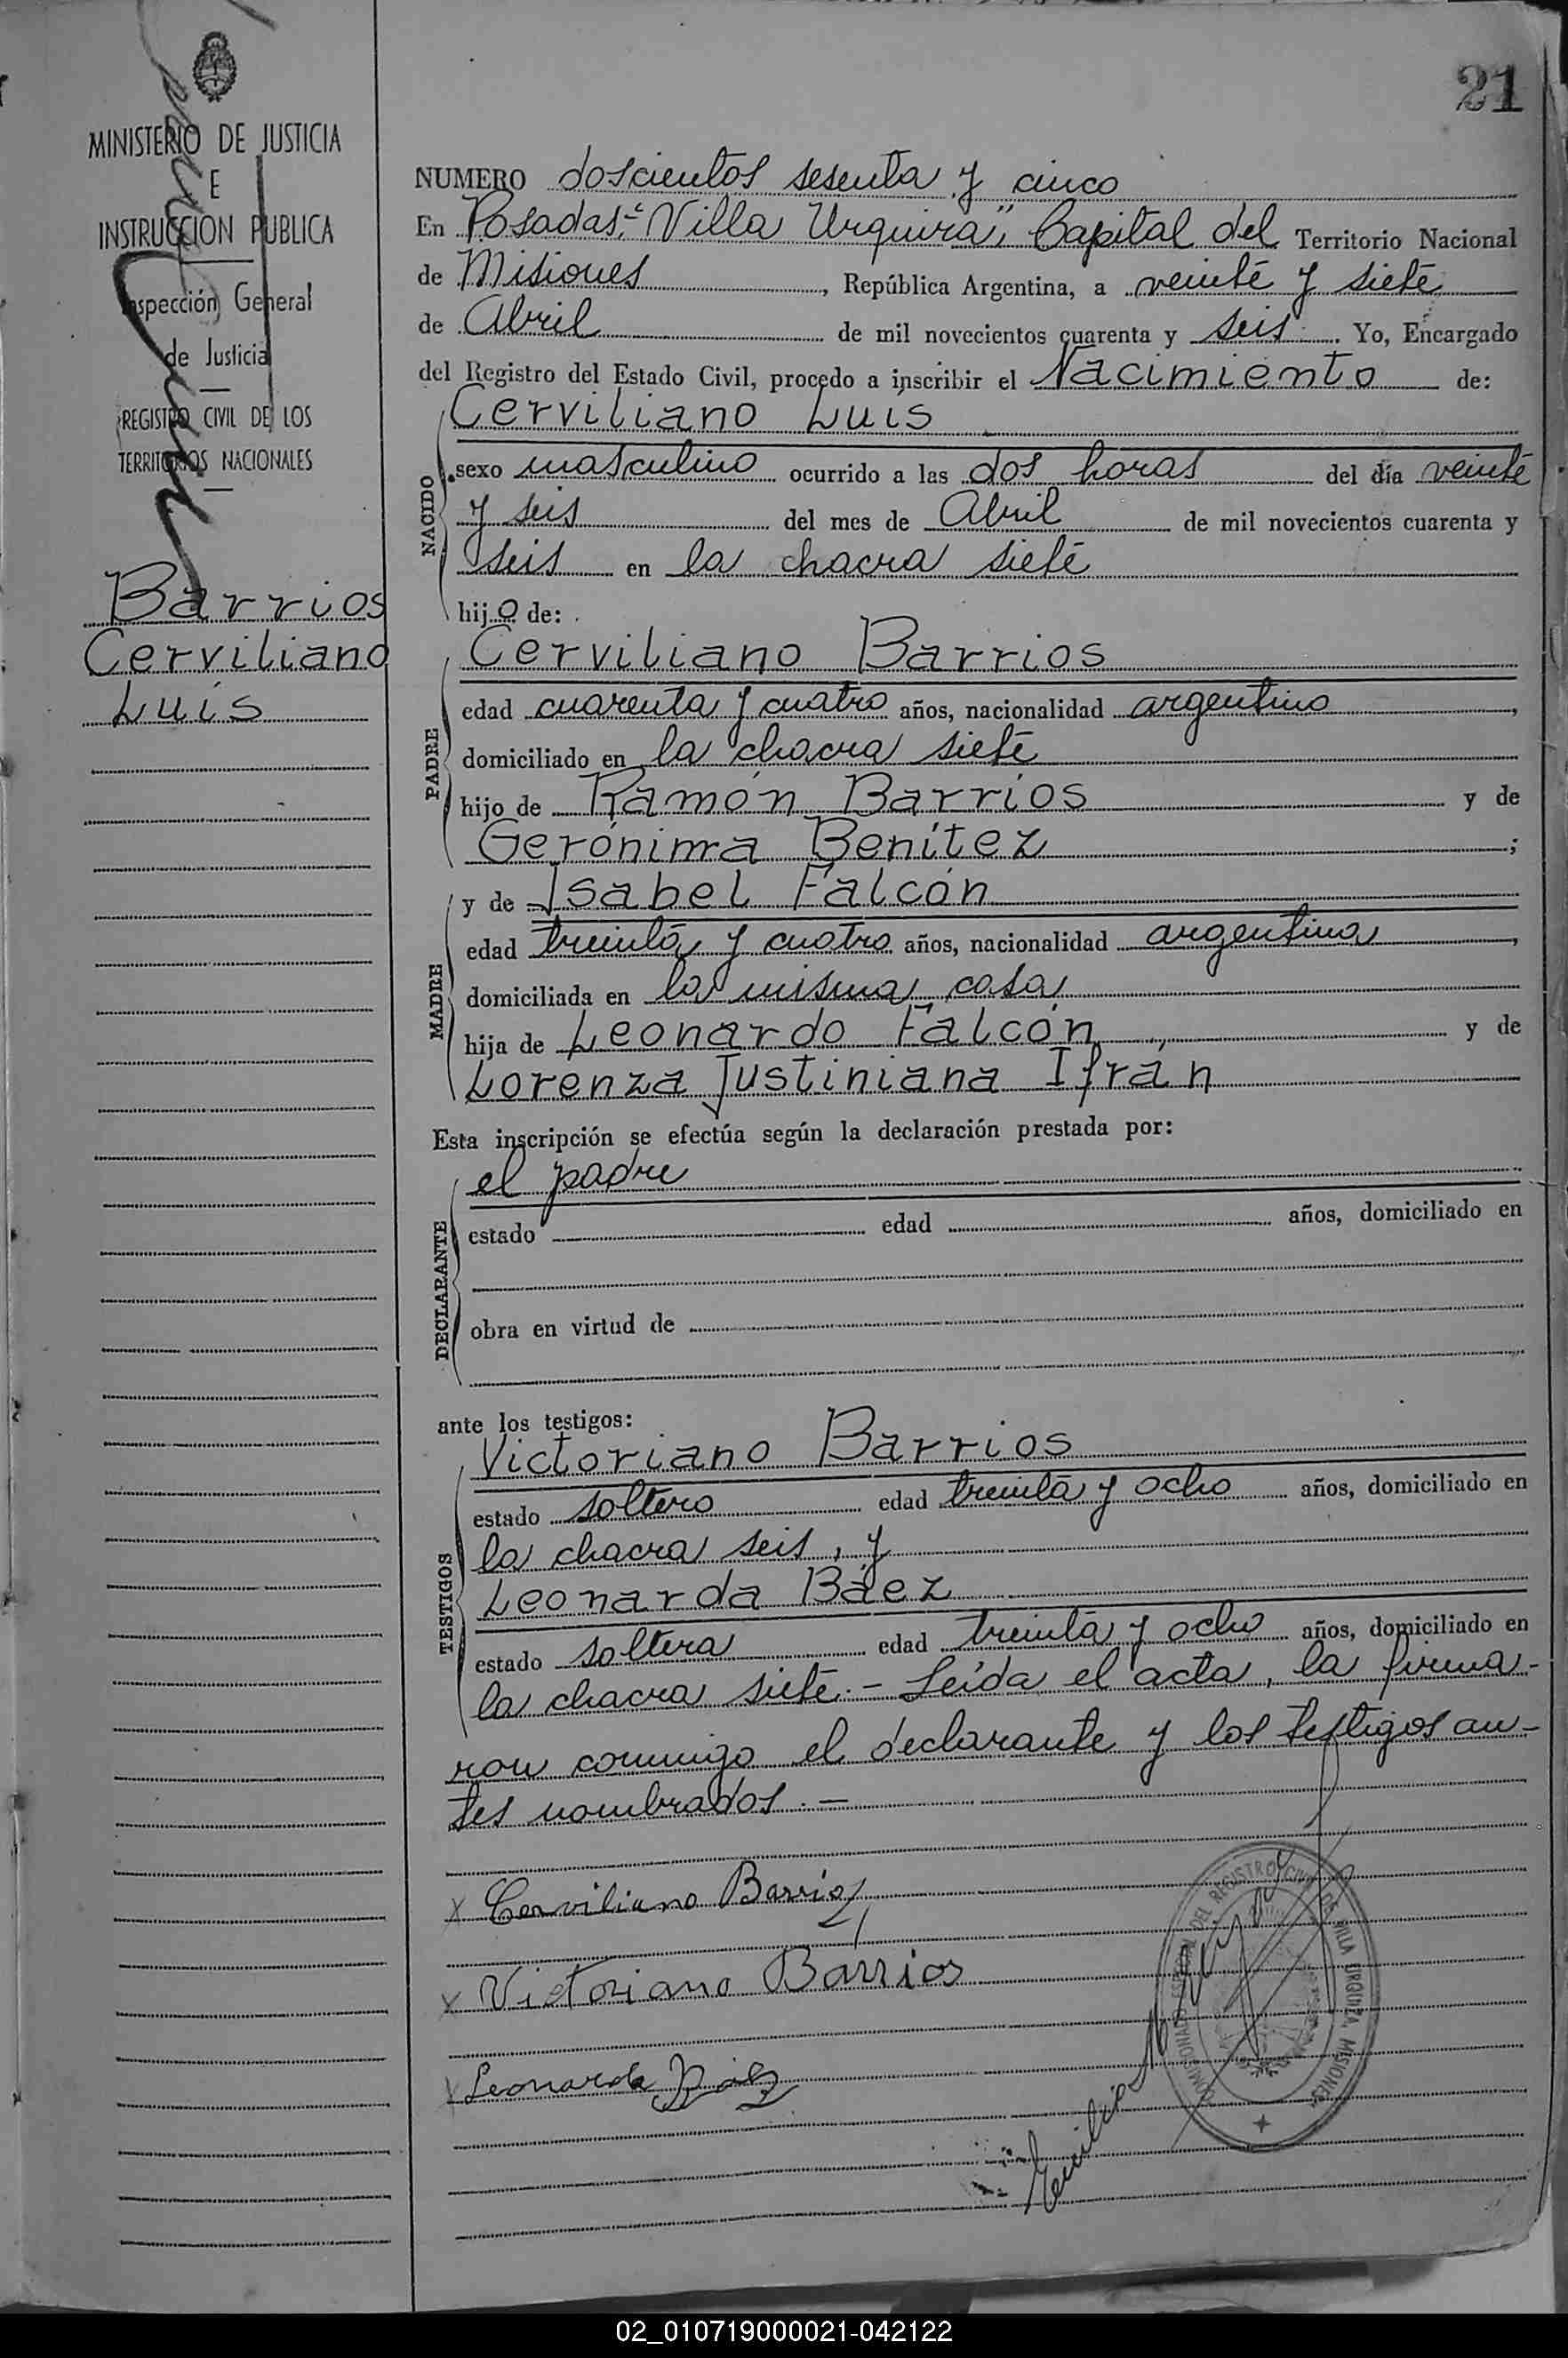 21
MINISTERIO DE JUSTICIA
E
INSTRUCCION PUBLICA
Inspección General
de Justicia
REGISTRO CIVIL DE LOS
TERRITORIOS NACIONALES
Barrios
Cerviliano
Luis
NUMERO doscientos sesenta y cinco
En Posadas, "Villa Urquiza", Capital del Territorio Nacional
de Misiones, República Argentina, a veinte y siete
de Abril de mil novecientos cuarenta y seis. Yo, Encargado
del Registro del Estado Civil, procedo a inscribir el Nacimiento de:
NACIDO
Cerviliano Luis
sexo masculino ocurrido a las dos horas del día veinte
y seis del mes de Abril de mil novecientos cuarenta y
seis en la chacra siete
hijo de:
PADRE
Cerviliano Barrios
edad cuarenta y cuatro años, nacionalidad argentino,
domiciliado en la chacra siete
hijo de Ramón Barrios y de
Gerónima Benítez;
MADRE
y de Isabel Falcón
edad treinta y cuatro años, nacionalidad argentina,
domiciliada en la misma casa
hija de Leonardo Falcón y de
Lorenza Justiniana Ifrán
Esta inscripción se efectúa según la declaración prestada por:
DECLARANTE
el padre
estado edad años, domiciliado en
obra en virtud de
ante los testigos:
TESTIGOS
Victoriano Barrios
estado soltero edad treinta y ocho años, domiciliado en
la chacra seis, y
Leonarda Báez
estado soltera edad treinta y ocho años, domiciliado en
la chacra siete.- Leída el acta, la firma-
ron conmigo el declarante y los testigos an-
tes nombrados.-
x Cerviliano Barrios
x Victoriano Barrios
x Leonarda Báez
Emilio
DEL REGISTRO CIVIL DE VILLA URQUIZA, MISIONES
02_010719000021-042122